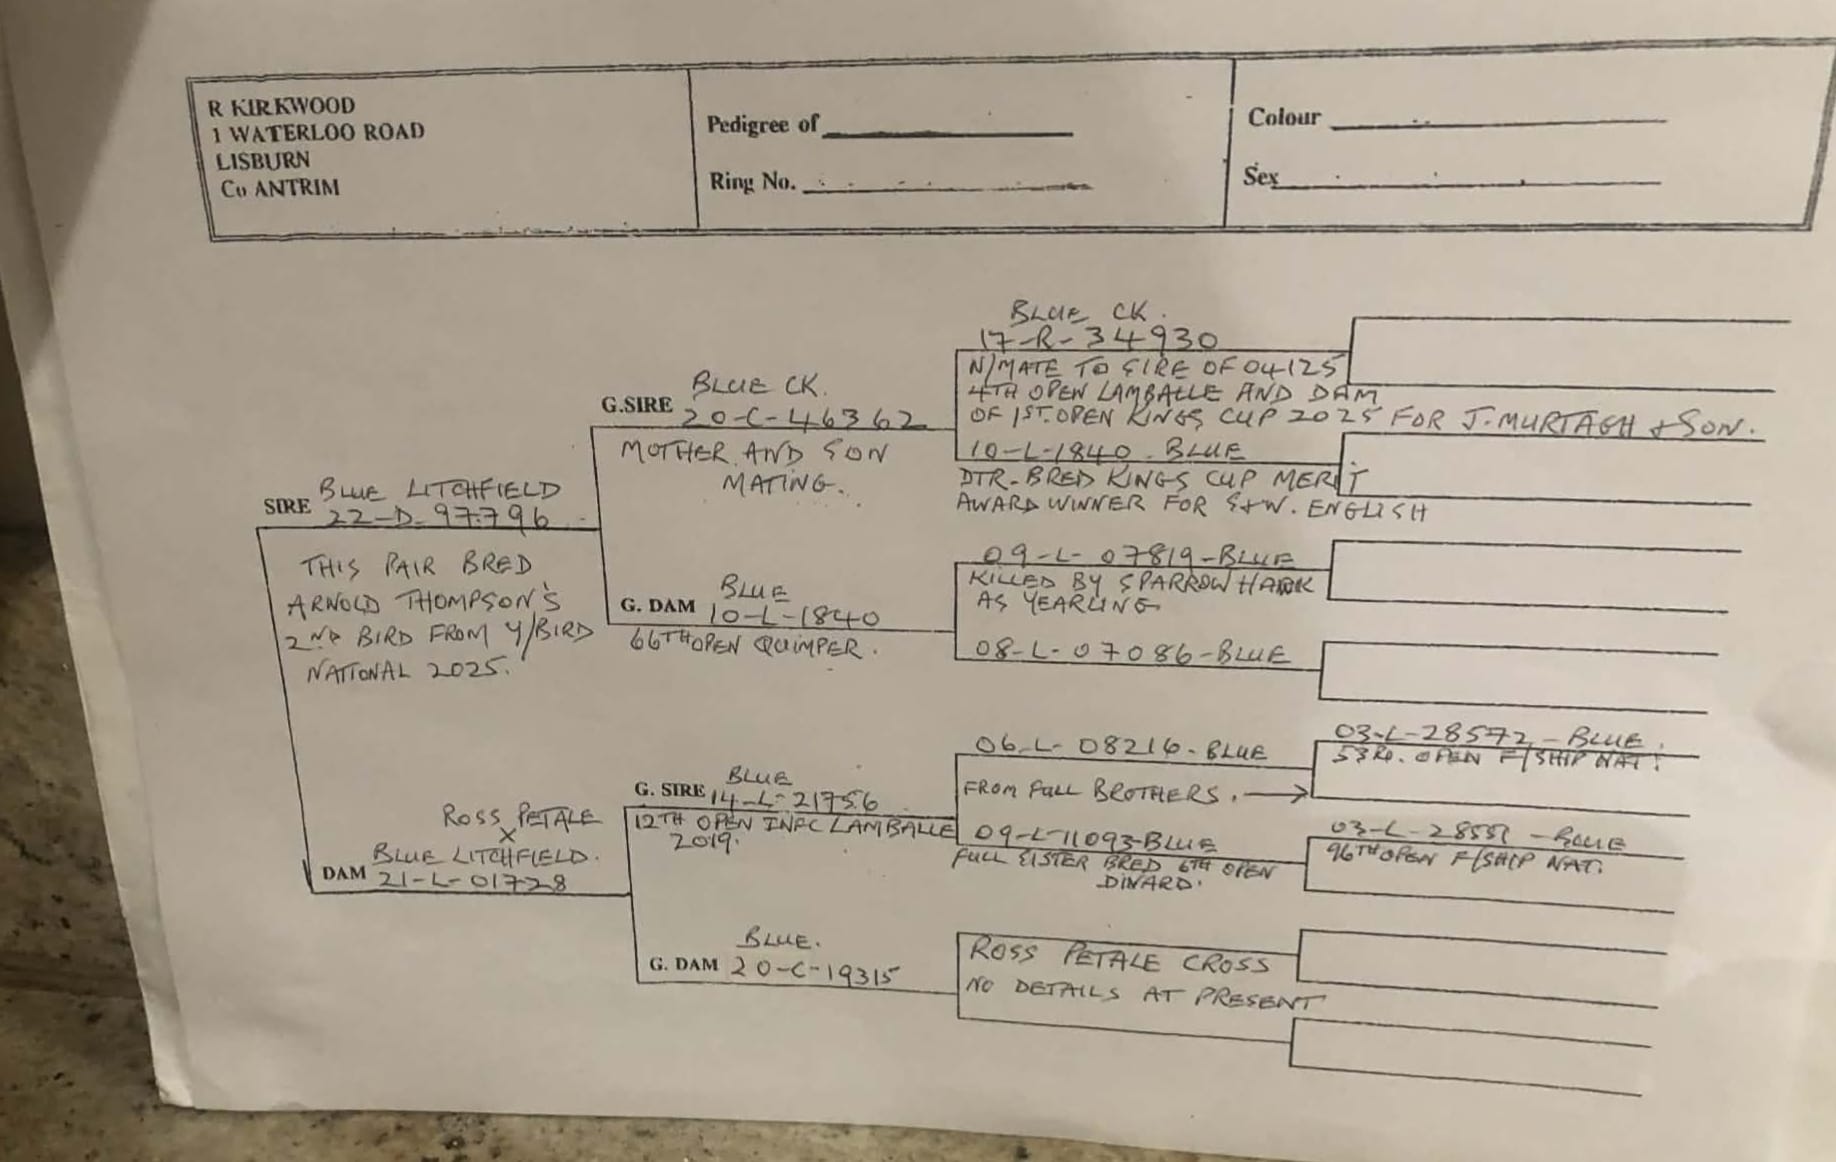 R KIRKWOOD
1 WATERLOO ROAD
LISBURN
Co ANTRIM
Pedigree of
Ring No.
Colour
Sex
SIRE BLUE LITCHFIELD
22-D-97796
THIS PAIR BRED
ARNOLD THOMPSON'S
2ND BIRD FROM Y/BIRD
NATIONAL 2025.
ROSS PETALE
X
BLUE LITCHFIELD.
DAM 21-L-01728
BLUE CK.
G.SIRE 20-C-46362
MOTHER AND SON
MATING.
BLUE
G. DAM 10-L-1840
66TH OPEN QUIMPER.
BLUE
G. SIRE 14-L-21756
12TH OPEN INFC LAMBALLE
2019.
BLUE.
G. DAM 20-C-19315
BLUE CK.
17-R-34930
N/MATE TO SIRE OF 04125
4TH OPEN LAMBALLE AND DAM
OF 1ST. OPEN KINGS CUP 2025 FOR J. MURTAGH & SON.
10-L-1840. BLUE
DTR. BRED KINGS CUP MERIT
AWARD WINNER FOR S+W. ENGLISH
09-L-07819-BLUE
KILLED BY SPARROW HAWK
AS YEARLING
08-L-07086-BLUE
06-L-08216-BLUE
FROM FULL BROTHERS. →
09-L-11093-BLUE
FULL SISTER BRED 6TH OPEN
DINARD.
ROSS PETALE CROSS
NO DETAILS AT PRESENT
03-L-28572-BLUE.
53RD. OPEN F/SHIP NAT.
03-L-28551-BLUE
96TH OPEN F/SHIP NAT.